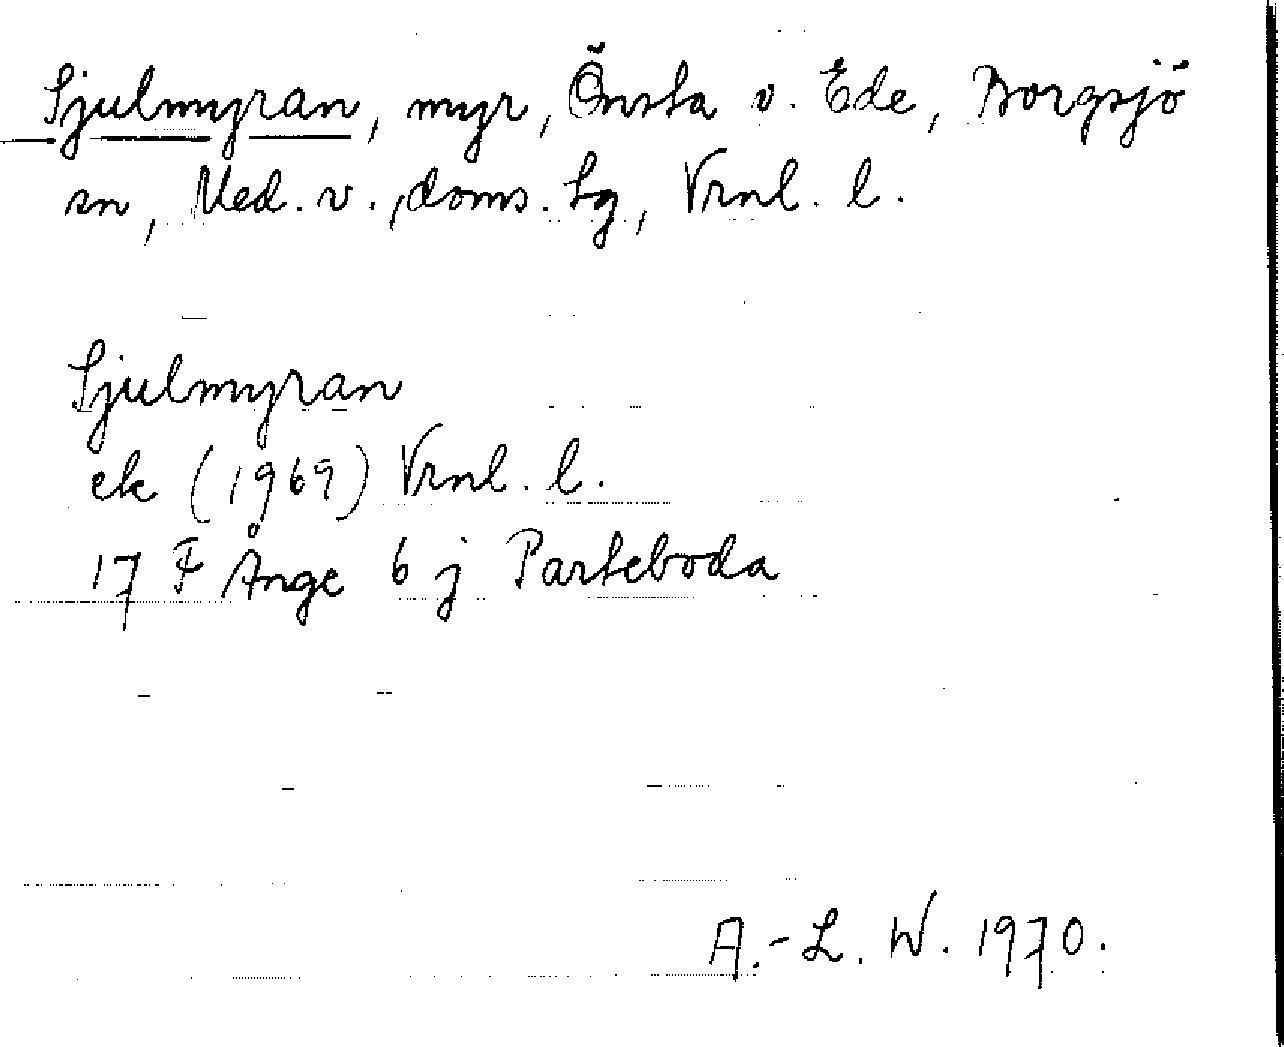 Sjulmyran, myr, Önsta v. Ede, Borgsjö
sn, Med. v., doms. lg, Vrnl. l.
Sjulmyran
ek (1969) Vrnl. l.
17 F Ånge 6 j Parteboda
A.-L. W. 1970.